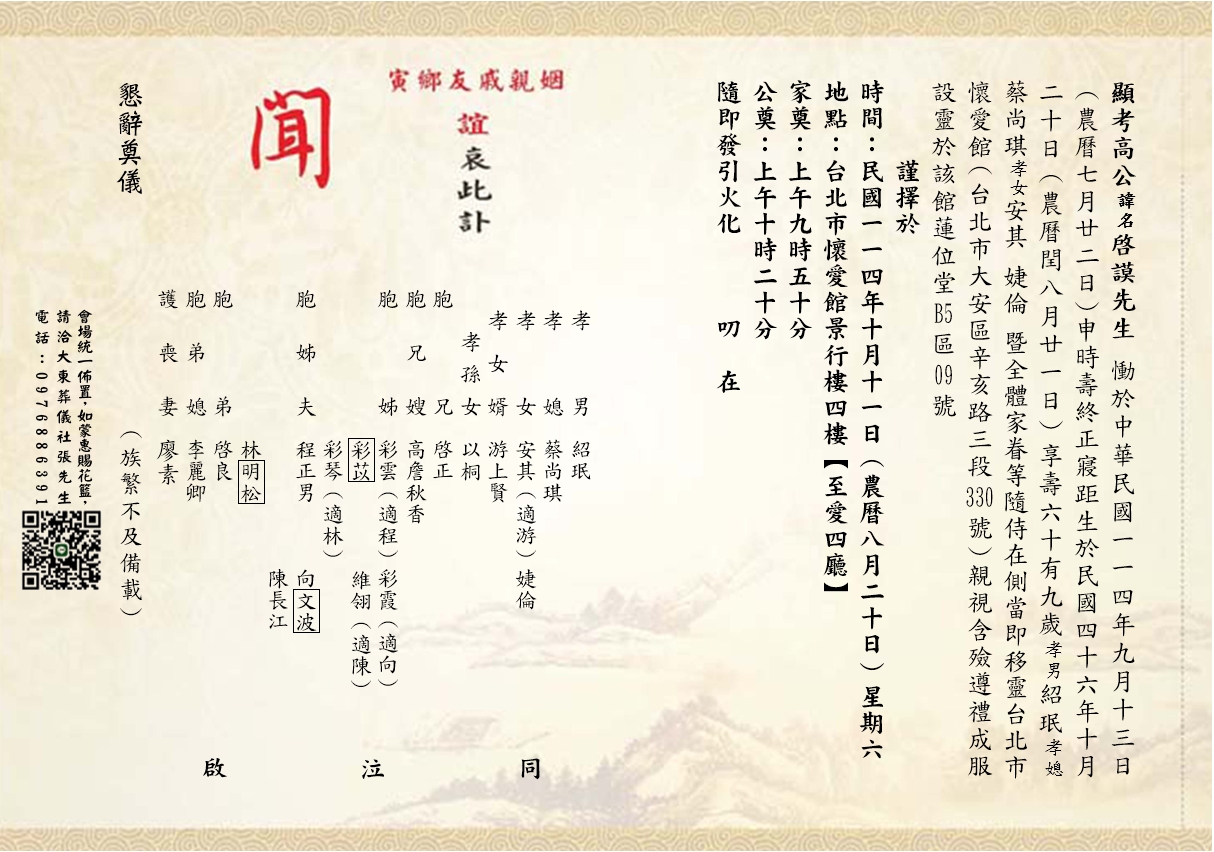 顯考高公諱名啓謨先生 慟於中華民國一一四年九月十三日
（農曆七月廿二日）申時壽終正寢距生於民國四十六年十月
二十日（農曆閏八月廿一日）享壽六十有九歲孝男紹珉孝媳
蔡尚琪孝女安其 婕倫 暨全體家眷等隨侍在側當即移靈台北市
懷愛館（台北市大安區辛亥路三段330號）親視含殮遵禮成服
設靈於該館蓮位堂B5區09號
謹擇於
時間：民國一一四年十月十一日（農曆八月二十日）星期六
地點：台北市懷愛館景行樓四樓【至愛四廳】
家奠：上午九時五十分
公奠：上午十時二十分
隨即發引火化 叨在
姻親戚友鄉寅
誼
哀此訃
聞
孝男 紹珉
孝媳 蔡尚琪
孝女 安其（適游）婕倫
孝女婿 游上賢
孝孫女 以桐
胞兄 啓正
胞兄嫂 高詹秋香
胞姊 彩雲（適程）彩霞（適向）
彩苡 維翎（適陳）
彩琴（適林）
胞姊夫 程正男 向文波
陳長江
林明松
胞弟 啓良
胞弟媳 李麗卿
護喪妻 廖素
同泣啟
（族繁不及備載）
懇辭奠儀
會場統一佈置，如蒙惠賜花籃，
請洽大東葬儀社張先生
電話：0976886391